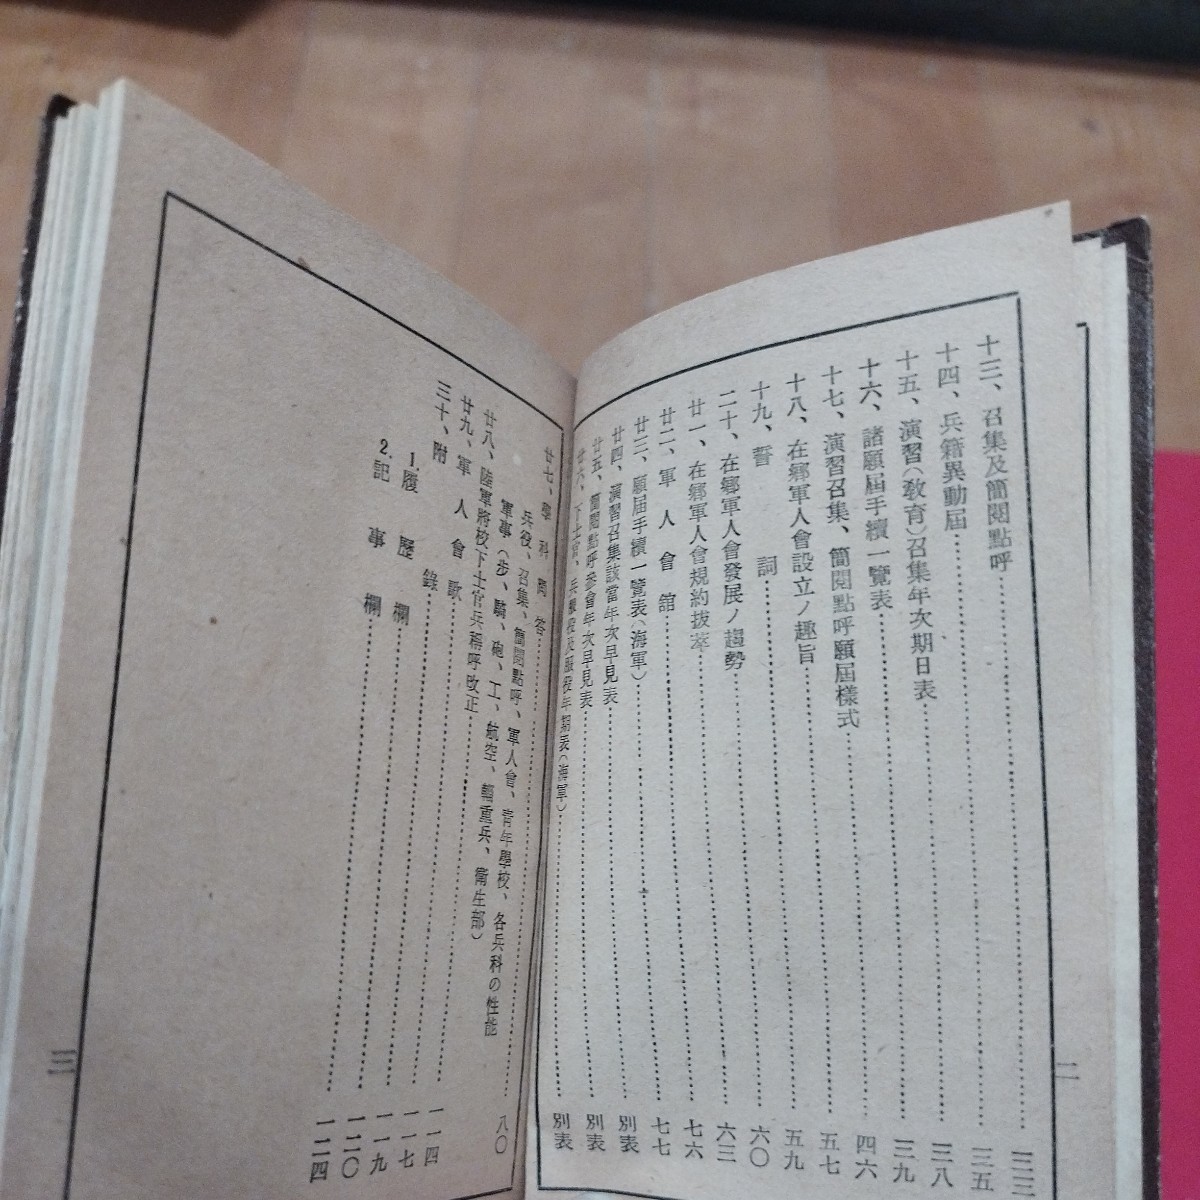 十三、召集及簡閱點呼……三三
十四、兵籍異動屆……三五
十五、演習(教育)召集年次期日表……三八
十六、諸願屆手續一覽表……三九
十七、演習召集、簡閱點呼願屆樣式……四六
十八、在鄉軍人會設立ノ趣旨……五七
十九、誓詞……五九
二十、在鄉軍人會發展ノ趨勢……六〇
廿一、在鄉軍人會規約拔萃……六三
廿二、軍人會館……七六
廿三、願屆手續一覽表(海軍)……七七
廿四、演習召集該當年次早見表……別表
廿五、簡閱點呼參會年次早見表……別表
廿六、下士官、兵服役及服役年期表(海軍)……別表
二
廿七、學科問答……八〇
兵役、召集、簡閱點呼、軍人會、青年學校、各兵科の性能
軍事(步、騎、砲、工、航空、輜重兵、衛生部)
廿八、陸軍將校下士官兵稱呼改正……一一四
廿九、軍人會歌……一一七
三十、附錄……一一九
1.履歷欄……一二〇
2.記事欄……一二四
三